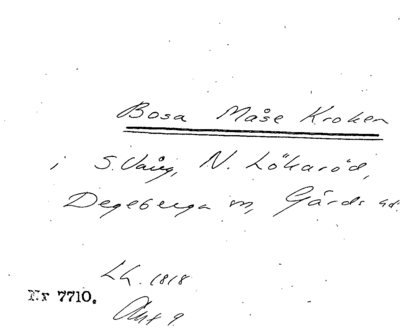 Bosa Måse Kroken
i S. Vång, N. Lökaröd,
Degeberga sn, Gärds hd.
Lh. 1818
Nr 7710.
Akt 9